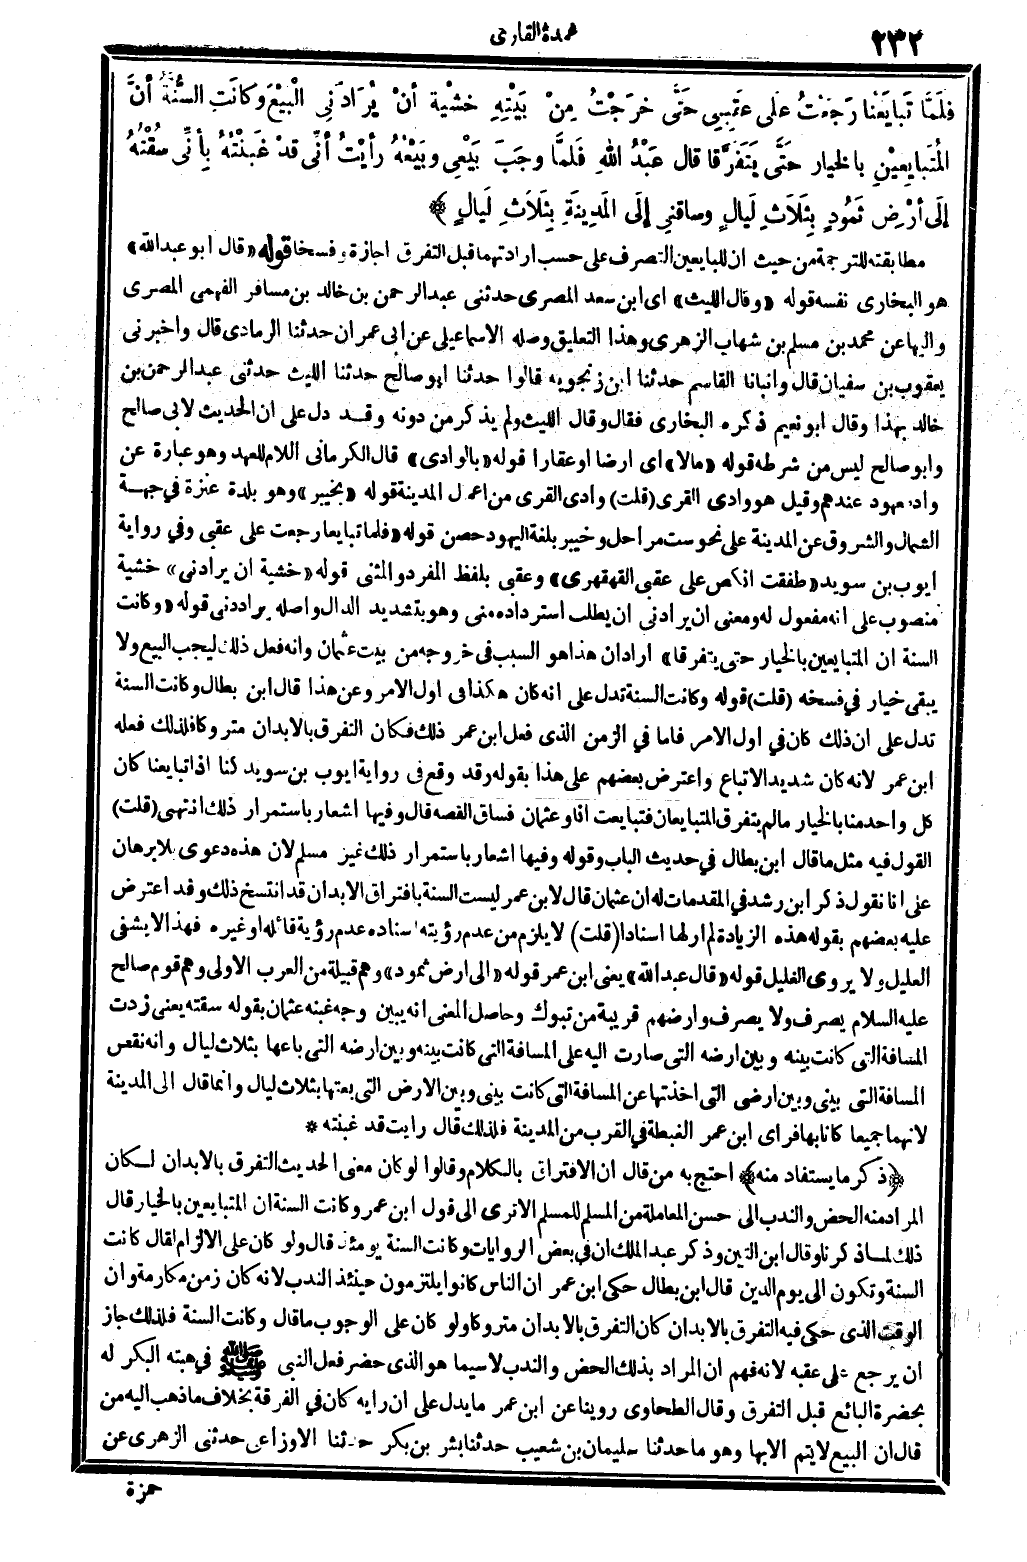 ٢٣٢
عمدة القارى
فَلَمَّا تَبَايَعْنَا رَجَعْتُ عَلَى عَقِبِي حَتَّى خَرَجْتُ مِنْ بَيْتِهِ خَشْيَةَ أَنْ يُرَادَّنِي الْبَيْعَ وَكَانَتِ السُّنَّةُ أَنَّ
الْمُتَبَايِعَيْنِ بِالْخِيَارِ حَتَّى يَتَفَرَّقَا قَالَ عَبْدُ اللهِ فَلَمَّا وَجَبَ بَيْعِي وَبَيْعُهُ رَأَيْتُ أَنِّي قَدْ غَبَنْتُهُ بِأَنِّي سُقْتُهُ
إِلَى أَرْضِ ثَمُودٍ بِثَلَاثِ لَيَالٍ وَسَاقَنِي إِلَى الْمَدِينَةِ بِثَلَاثِ لَيَالٍ ﴾
مطابقته للترجمة من حيث ان للبايعين التصرف على حسب ارادتهما قبل التفرق اجازة وفسخا قوله «قال ابو عبدالله»
هو البخارى نفسه قوله «وقال الليث» اى ابن سعد المصرى حدثنى عبدالرحمن بن خالد بن مسافر الفهمى المصرى
واليها عن محمد بن مسلم بن شهاب الزهرى وهذا التعليق وصله الاسماعيلى عن ابى عمران حدثنا الرمادى قال واخبرنى
يعقوب بن سفيان قال وانبانا القاسم حدثنا ابن زنجويه قالوا حدثنا ابو صالح حدثنا الليث حدثنى عبدالرحمن بن
خالد بهذا وقال ابو نعيم ذكره البخارى فقال وقال الليث ولم يذكر من دونه وقد دل على ان الحديث لابى صالح
وابو صالح ليس من شرطه قوله «مالا» اى ارضا او عقارا قوله «بالوادى» قال الكرمانى اللام للعهد وهو عبارة عن
واد معهود عندهم وقيل هو وادى القرى (قلت) وادى القرى من اعمال المدينة قوله «بخيبر» وهو بلدة عنزة في جهة
الشمال والشروق عن المدينة على نحو ست مراحل وخيبر بلغة اليهود حصن قوله «فلما تبايعا رجعت على عقبى وفي رواية
ايوب بن سويد «طفقت انكص على عقبى القهقهرى» وعقبى بلفظ المفرد والمثنى قوله «خشية ان يرادنى» خشية
منصوب على انه مفعول له ومعنى ان يرادنى ان يطلب استرداده منى وهو بتشديد الدال واصله يراددنى قوله «وكانت
السنة ان المتبايعين بالخيار حتى يتفرقا» اراد ان هذا هو السبب فى خروجه من بيت عثمان وانه فعل ذلك ليجب البيع ولا
يبقى خيار في فسخه (قلت) قوله وكانت السنة تدل على انه كان هكذا فى اول الامر وعن هذا قال ابن بطال وكانت السنة
تدل على ان ذلك كان في اول الامر فاما في الزمن الذى فعل ابن عمر ذلك فكان التفرق بالابدان متروكا فلذلك فعله
ابن عمر لانه كان شديد الاتباع واعترض بعضهم على هذا بقوله وقد وقع فى رواية ايوب بن سويد كنا اذا تبايعنا كان
كل واحد منا بالخيار مالم يتفرق المتبايعان فتبايعت انا وعثمان فساق القصه قال وفيها اشعار باستمرار ذلك انتهى (قلت)
القول فيه مثل ما قال ابن بطال في حديث الباب وقوله وفيها اشعار باستمرار ذلك غير مسلم لان هذه دعوى بلا برهان
على انا نقول ذكر ابن رشد في المقدمات له ان عثمان قال لابن عمر ليست السنة بافتراق الابدان قد انتسخ ذلك وقد اعترض
عليه بعضهم بقوله هذه الزيادة لم ار لها اسنادا (قلت) لا يلزم من عدم رؤيته اسناده عدم رؤية قائله او غيره فهذا لا يشفى
العليل ولا يروى الغليل قوله «قال عبدالله» يعنى ابن عمر قوله «الى ارض ثمود» وهم قبيلة من العرب الاولى وهم قوم صالح
عليه السلام يصرف ولا يصرف وارضهم قريبة من تبوك وحاصل المعنى انه يبين وجه غبنه عثمان بقوله سقته يعنى زدت
المسافة التى كانت بينه وبين ارضه التى صارت اليه على المسافة التى كانت بينه وبين ارضه التى باعها بثلاث ليال وانه نقص
المسافة التى بينى وبين ارضى التى اخذتها عن المسافة التى كانت بينى وبين الارض التى بعتها بثلاث ليال وانما قال الى المدينة
لانهما جميعا كانا بها فراى ابن عمر الغبطة في القرب من المدينة فلذلك قال رايت قد غبنته *
﴿ذكر ما يستفاد منه﴾ احتج به من قال ان الافتراق بالكلام وقالوا لو كان معنى الحديث التفرق بالابدان لكان
المراد منه الحض والندب الى حسن المعاملة من المسلم للمسلم الا ترى الى قول ابن عمر وكانت السنة ان المتبايعين بالخيار قال
ذلك لما ذكرنا وقال ابن التين وذكر عبدالملك ان في بعض الروايات وكانت السنة يومئذ قال ولو كان على الالزام لقال كانت
السنة وتكون الى يوم الدين قال ابن بطال حكى ابن عمر ان الناس كانوا يلتزمون حينئذ الندب لانه كان زمن مكارمة وان
الوقت الذى حكى فيه التفرق بالابدان كان التفرق بالابدان متروكا ولو كان على الوجوب ما قال وكانت السنة فلذلك جاز
ان يرجع على عقبه لانه فهم ان المراد بذلك الحض والندب لا سيما هو الذى حضر فعل النبى ﷺ في هبته البكر له
بحضرة البائع قبل التفرق وقال الطحاوى روينا عن ابن عمر ما يدل على ان رايه كان في الفرقة بخلاف ما ذهب اليه من
قال ان البيع لا يتم الا بها وهو ما حدثنا سليمان بن شعيب حدثنا بشر بن بكر حدثنا الاوزاعى حدثنى الزهرى عن
حمزة